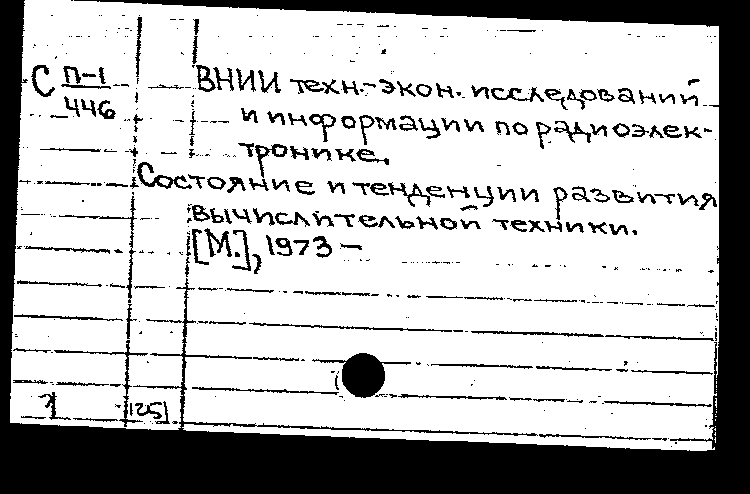 С П-1
446
ВНИИ техн.-экон. исследований
и информации по радиоэлек-
тронике.
Состояние и тенденции развития
вычислительной техники.
[М.], 1973 –
125